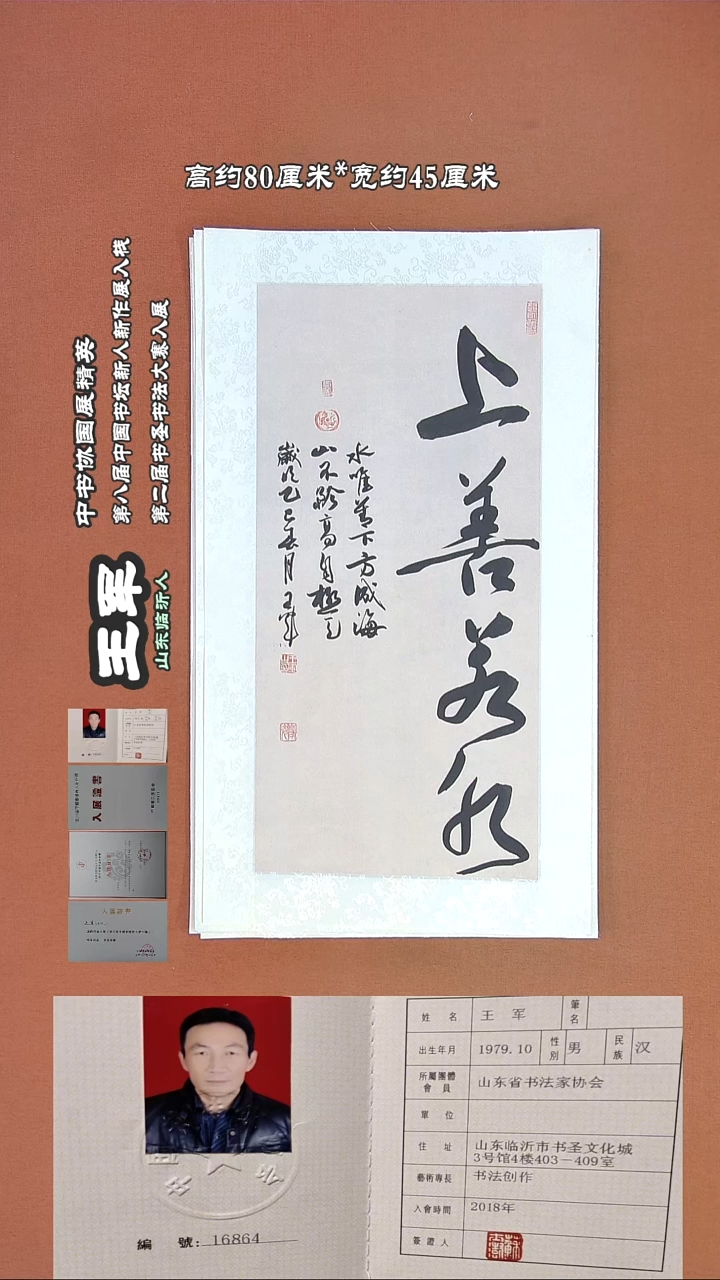 高约80厘米*宽约45厘米
中书协国展精英
第八届中国书坛新人新作展入栈
第二届书圣书法大赛入展
王军
山东临沂人
上善若水
水唯善下方成海
山不矜高自极天
岁次乙巳春月王军
入展證書
姓 名 王 军 筆名
出生年月 1979.10 性別 男 民族 汉
所屬團體會員 山东省书法家协会
單 位
住 址 山东临沂市书圣文化城3号馆4楼403-409室
藝術專長 书法创作
入會時間 2018年
簽證人
編 號: 16864